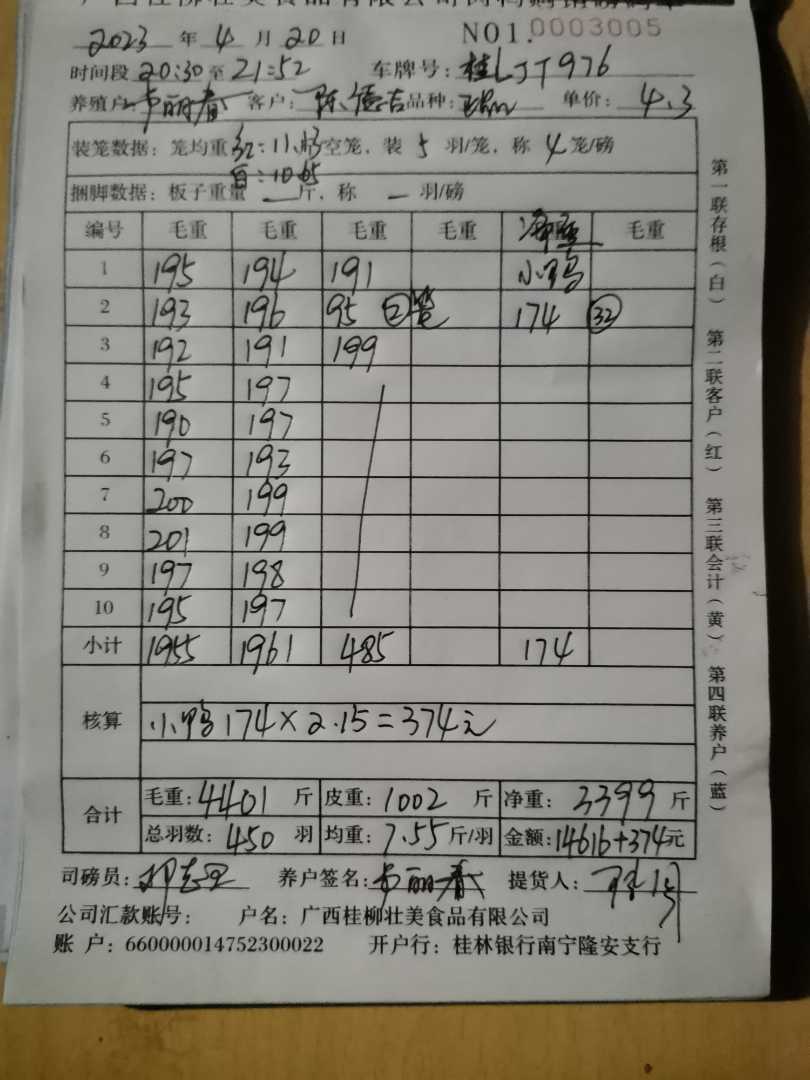 广西桂柳壮美食品有限公司
2023 年 4 月 20 日 NO1.0003005
时间段 20:30 至 21:52 车牌号: 桂LJT976
养殖户: 韦丽春 客户: 陈德吉 品种: 单价: 4.3
装笼数据: 笼均重 红:11.43 空笼, 装 5 羽/笼, 称 4 笼/磅
白:10.65
捆脚数据: 板子重量 — 斤, 称 — 羽/磅
编号 毛重 毛重 毛重 毛重 净重 毛重
1 195 194 191 小鸭
2 193 196 95 ②笼 174 ㉜
3 192 191 199
4 195 197
5 190 197
6 197 193
7 200 199
8 201 199
9 197 198
10 195 197
小计 1955 1961 485 174
核算 小鸭 174×2.15=374元
合计 毛重: 4401 斤 皮重: 1002 斤 净重: 3399 斤
总羽数: 450 羽 均重: 7.55 斤/羽 金额: 14616+374元
司磅员: 养户签名: 韦丽春 提货人:
公司汇款账号: 户名: 广西桂柳壮美食品有限公司
账 户: 660000014752300022 开户行: 桂林银行南宁隆安支行
第一联存根(白) 第二联客户(红) 第三联会计(黄) 第四联养户(蓝)